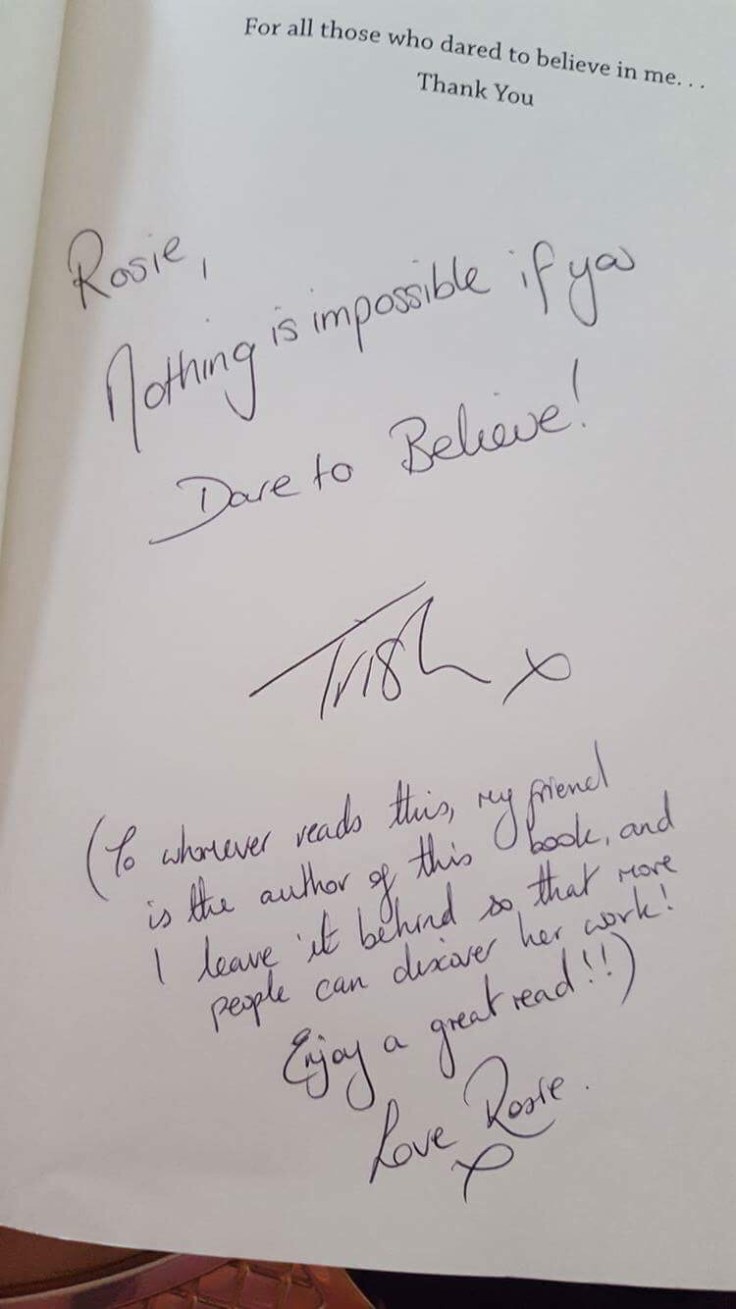 For all those who dared to believe in me. . .
Thank You
Rosie,
Nothing is impossible if you
Dare to Believe!
Trish x
(To whomever reads this, my friend
is the author of this book, and
I leave it behind so that more
people can discover her work!
Enjoy a great read!!)
Love Rosie.
x